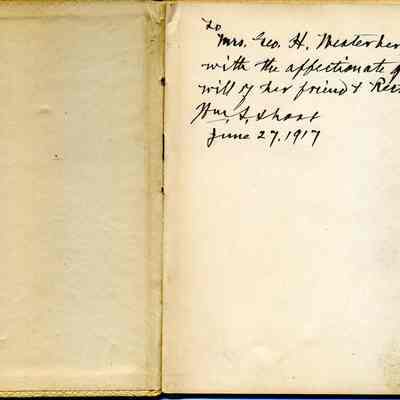 To
Mrs. Geo. H.
with the affectionate
will of her friend &
Wm. S. Short
June 27, 1917